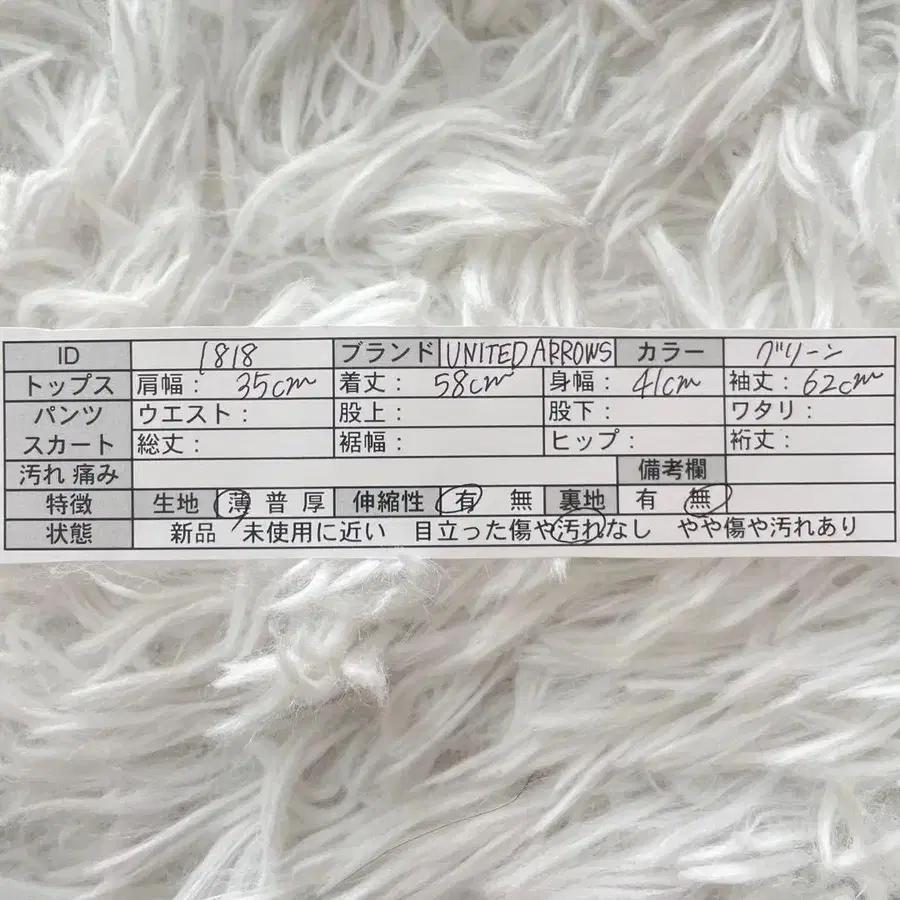 ID 1818 ブランド UNITED ARROWS カラー グリーン
トップス 肩幅： 35cm 着丈： 58cm 身幅： 41cm 袖丈： 62cm
パンツ ウエスト： 股上： 股下： ワタリ：
スカート 総丈： 裾幅： ヒップ： 裄丈：
汚れ 痛み 備考欄
特徴 生地 薄 普 厚 伸縮性 有 無 裏地 有 無
状態 新品 未使用に近い 目立った傷や汚れなし やや傷や汚れあり